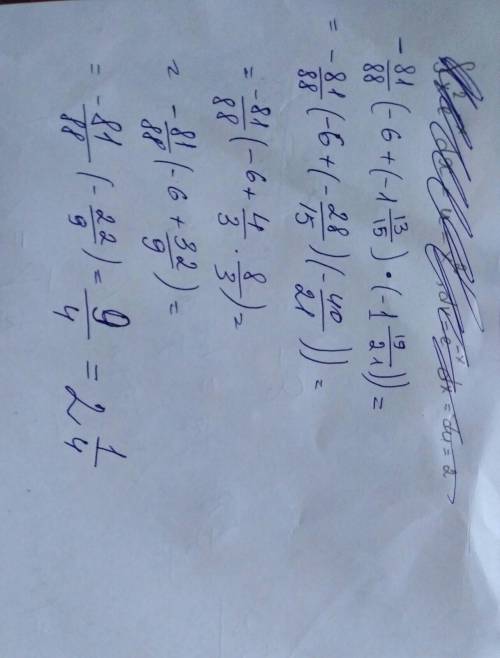 -81/88 (-6 + (-1 13/15) · (-1 19/21)) =
= -81/88 (-6 + (-28/15) (-40/21)) =
= -81/88 (-6 + 4/3 · 8/3) =
= -81/88 (-6 + 32/9) =
= -81/88 (-22/9) = 9/4 = 2 1/4